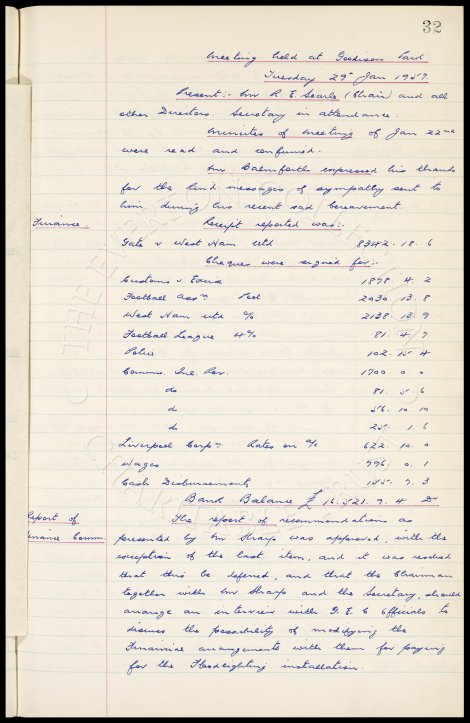 32
Meeting held at Goodison Park
Tuesday 29th Jan 1957
Present:- Mr R. E. Searle (Chair) and all
other Directors. Secretary in attendance.
Minutes of Meeting of Jan 22nd
were read and confirmed.
Mr Balmforth expressed his thanks
for the kind messages of sympathy sent to
him during his recent sad bereavement.
Finance. Receipt reported was:-
Gate v West Ham Utd 8342. 18. 6
Cheques were signed for:-
Customs & Excise 1878. 4. 2
Football Assn Pool 2030. 13. 8
West Ham Utd a/c 2138. 13. 9
Football League 4% 81. 4. 7
Police 102. 15. 4
Comms. Inl. Rev. 1700. 0. 0
do 81. 5. 6
do 56. 10. 10
do 25. 1. 6
Liverpool Corpn Rates on a/c 622. 10. 0
Wages 796. 0. 1
Cash Disbursements 155. 7. 3
Bank Balance £ 16. 521. 9. 4 Dr
Report of The report of recommendations as
Finance Comm. presented by Mr Sharp was approved, with the
exception of the last item, and it was resolved
that this be deferred, and that the Chairman
together with Mr Sharp and the Secretary, should
arrange an interview with G. E. C Officials to
discuss the possibility of modifying the
Financial arrangements with them for paying
for the Floodlighting installation.